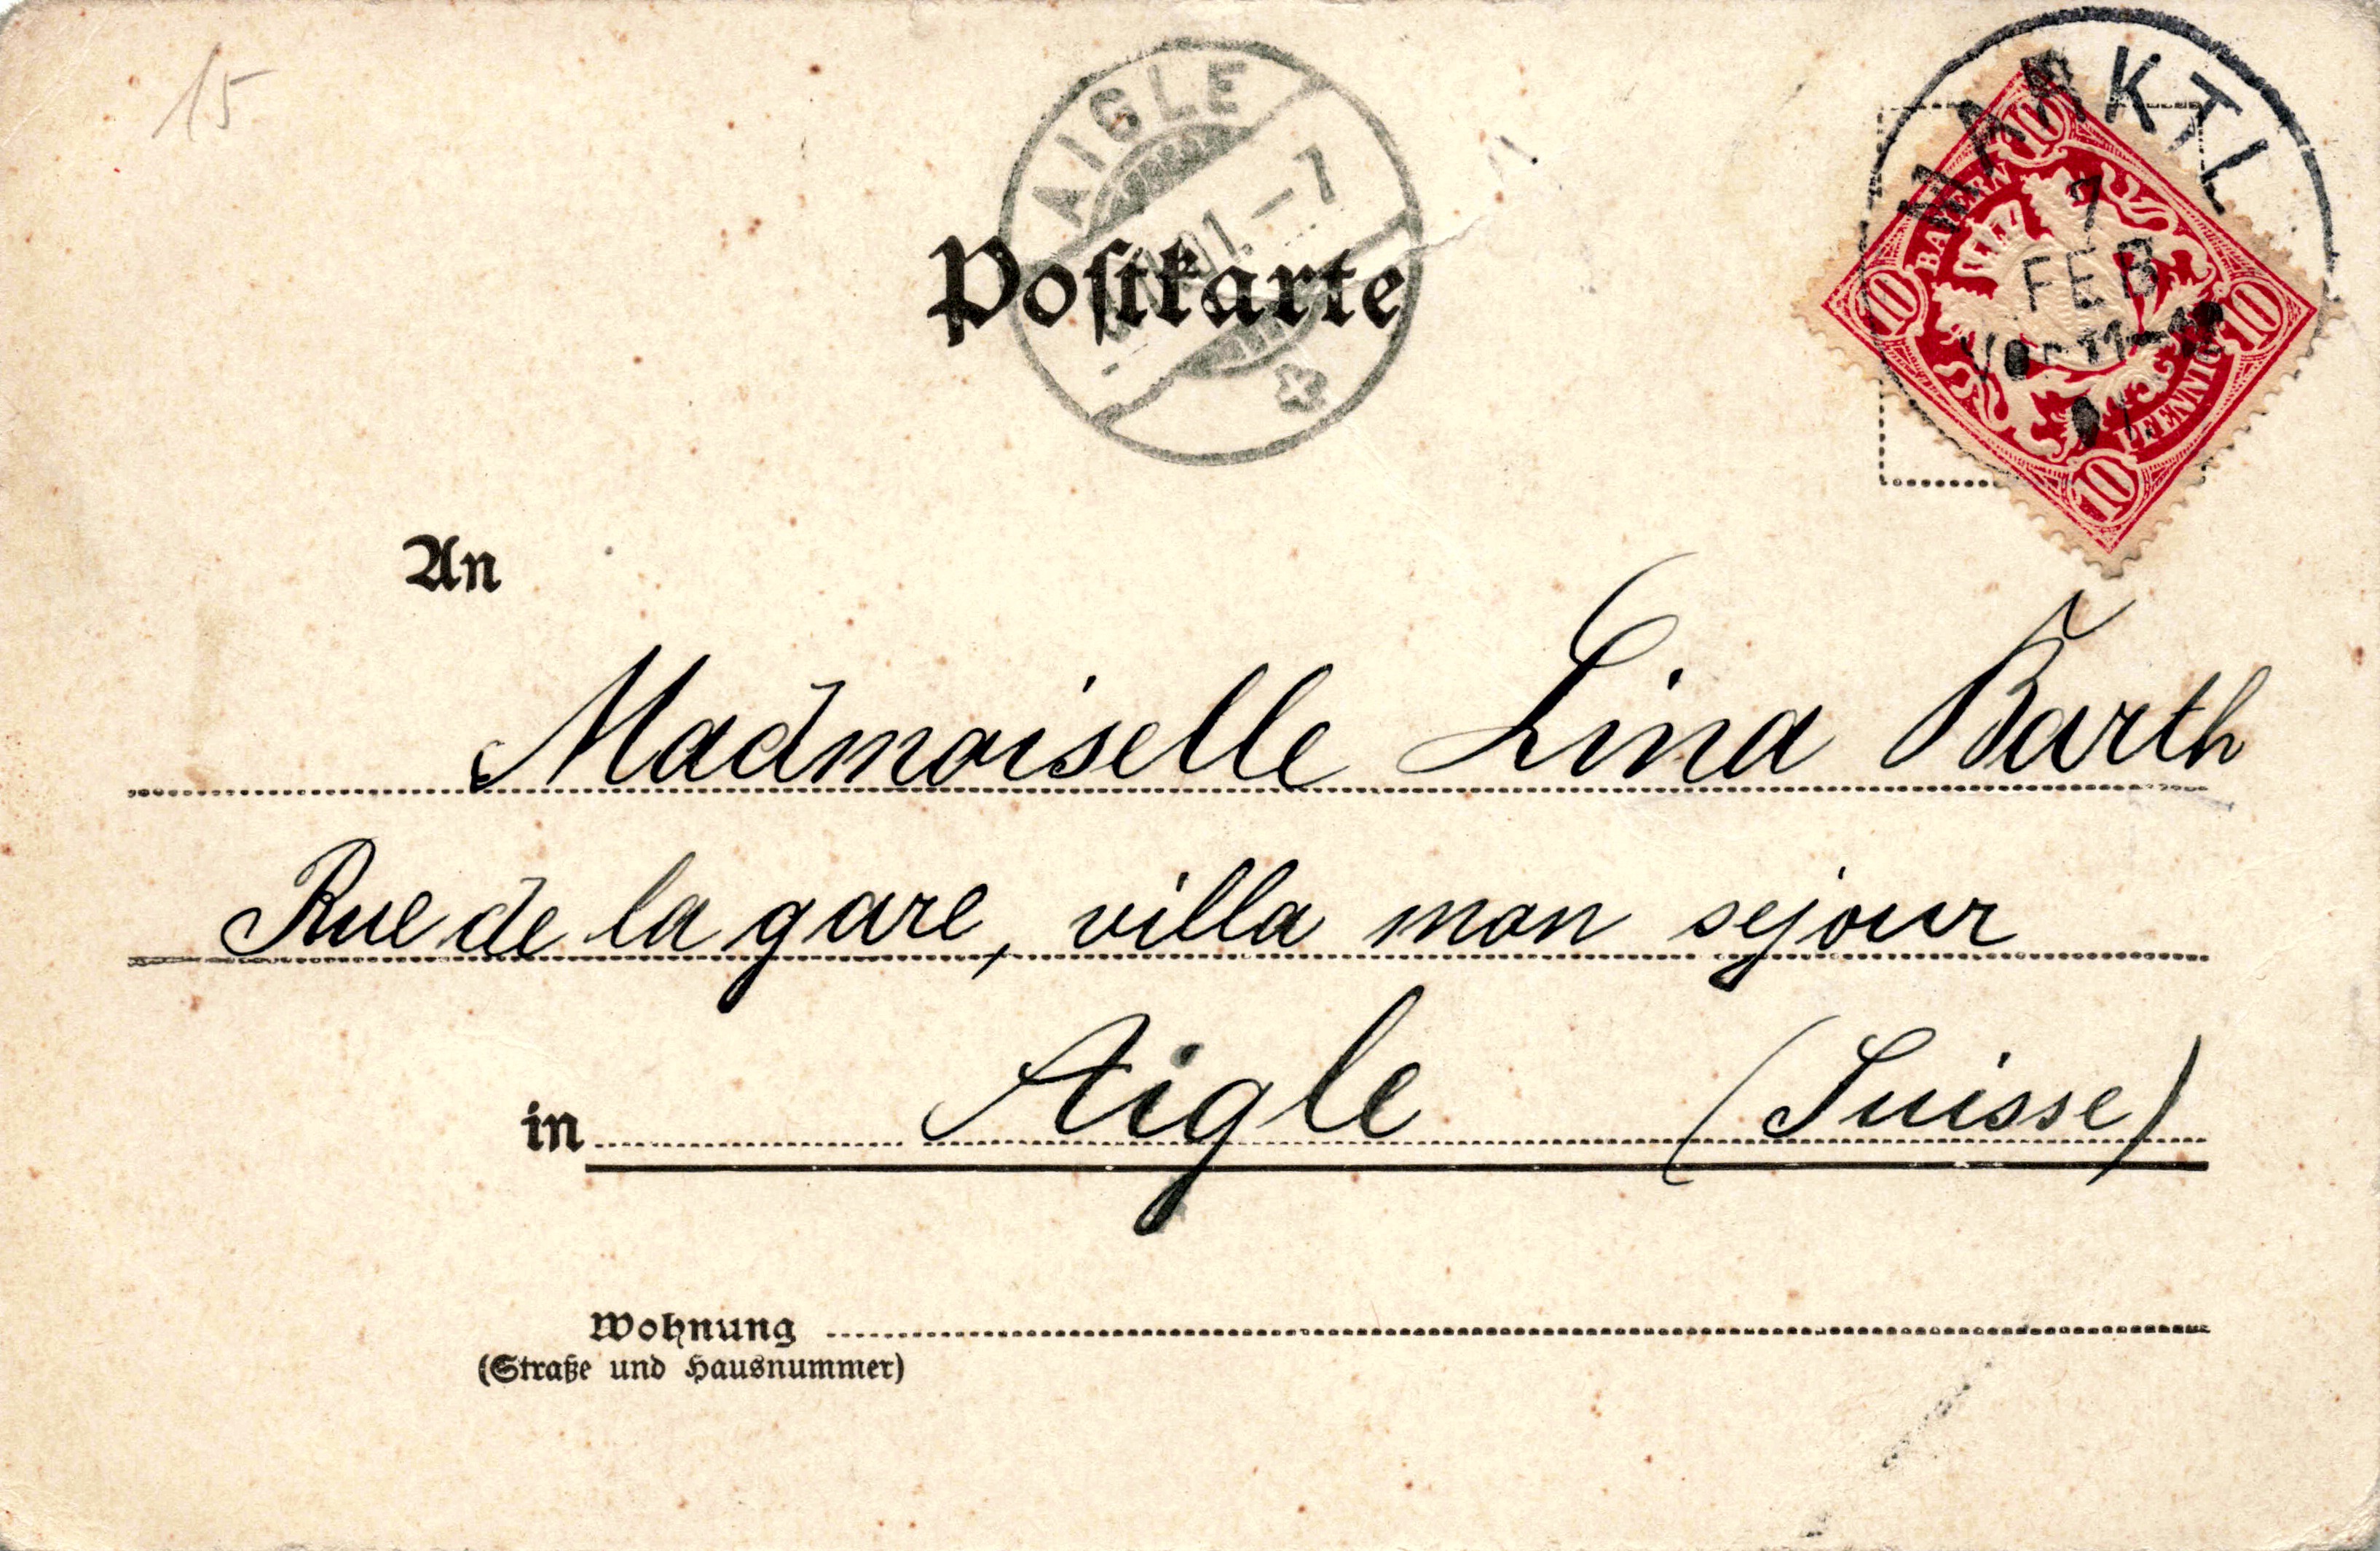 15
AIGLE
-7
MARKTL
7
FEB
Vor 11-12
01
BAYERN
10
10
10
10
PFENNIG
Postkarte
An
Madmoiselle Lina Barth
Rue de la gare, villa mon sejour
in Aigle (Suisse)
Wohnung
(Straße und Hausnummer)